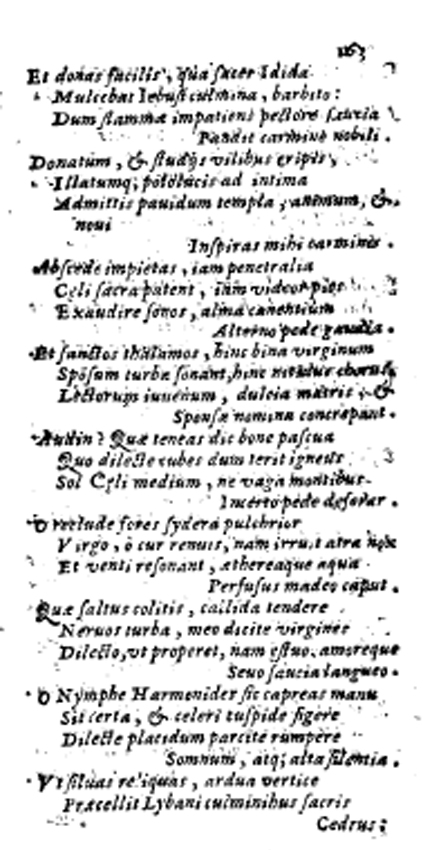 163
Et donas facilis, qua sacer Idida
Mulcebat Iebusi culmina, barbito:
Dum flammæ impatiens pectore saucia
Pandit carmine nobili.
Donatum, & studijs vilibus eripis,
Illatumq; ad intima
Admittis pauidum templa; animum, &
noui
Inspiras mihi carminis.
Abscede impietas, iam penetralia
Cęli sacra patent, iam videor pios
Exaudire sonos, alma canentium
Alterno pede gaudia.
Et sanctos thalamos, hinc bina virginum
Spōsam turba sonant, hinc chorus
Lectorum iuuenum, dulcia matris &
Sponsæ nomina concrepant.
Audin? Quæ teneas dic bone pascua
Quo dilecte cubes dum terit igneus
Sol Cęli medium, ne vaga montibus
Incerto pede deferar.
O reclude fores sydera pulchrior
Virgo, ò cur renuis, nam irruit atra nox
Et venti resonant, æthereaque aqua
Perfusus madeo caput.
Quæ saltus colitis, callida tendere
Neruos turba, meo dicite virgines
Dilecto, vt properet, nam estuo, amoreque
Seuo saucia langueo.
O Nymphe Harmenides sic capreas manu
Sit certa, & celeri cuspide figere
Dilecte placidum parcite rumpere
Somnum, atq; alta silentia.
Vt siluas reliquas, ardua vertice
Præcellit Lybani culminibus sacris
Cedrus;